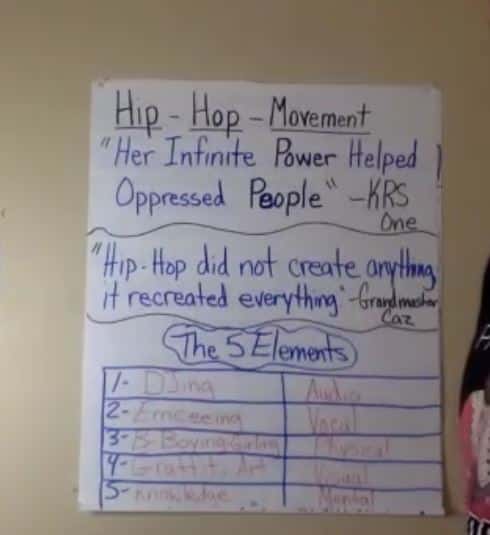 Hip - Hop - Movement
"Her Infinite Power Helped
Oppressed People" - KRS
One
"Hip-Hop did not create anything,
it recreated everything" - Grandmaster
Caz
The 5 Elements
1- DJing Audio
2- Emceeing Vocal
3- B-Boying/Girling Physical
4- Graffiti Art Visual
5- Knowledge Mental